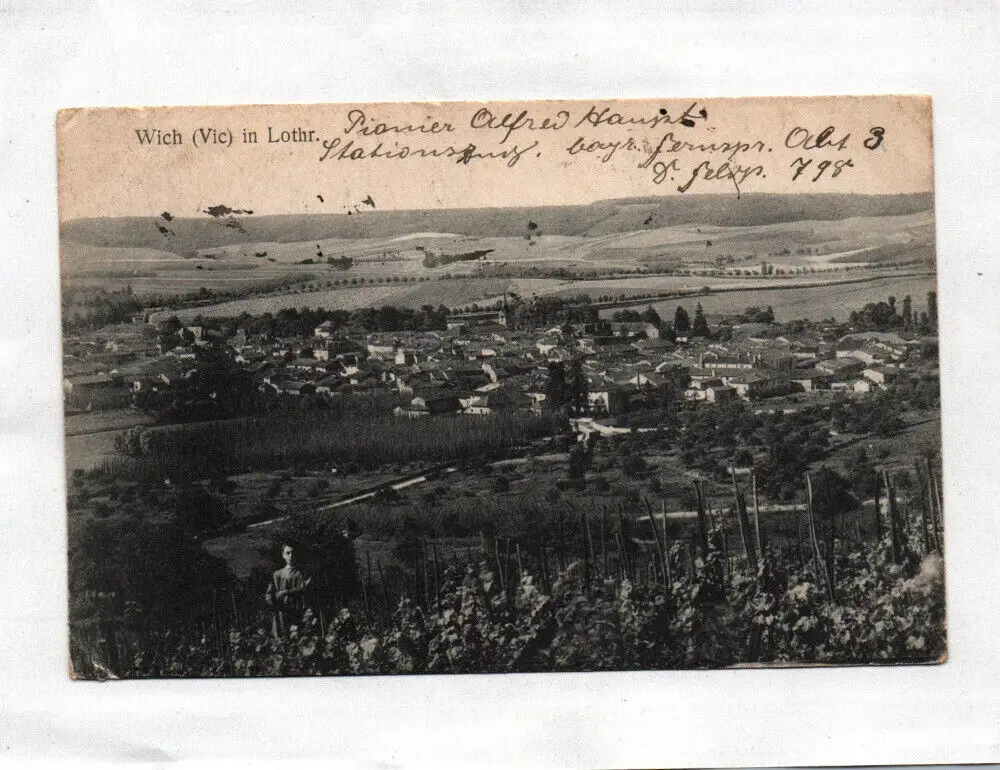 Wich (Vic) in Lothr.
Pionier Alfred Haupt
Stationszug. bayr. Fernspr. Abt 3
D. Feldp. 798